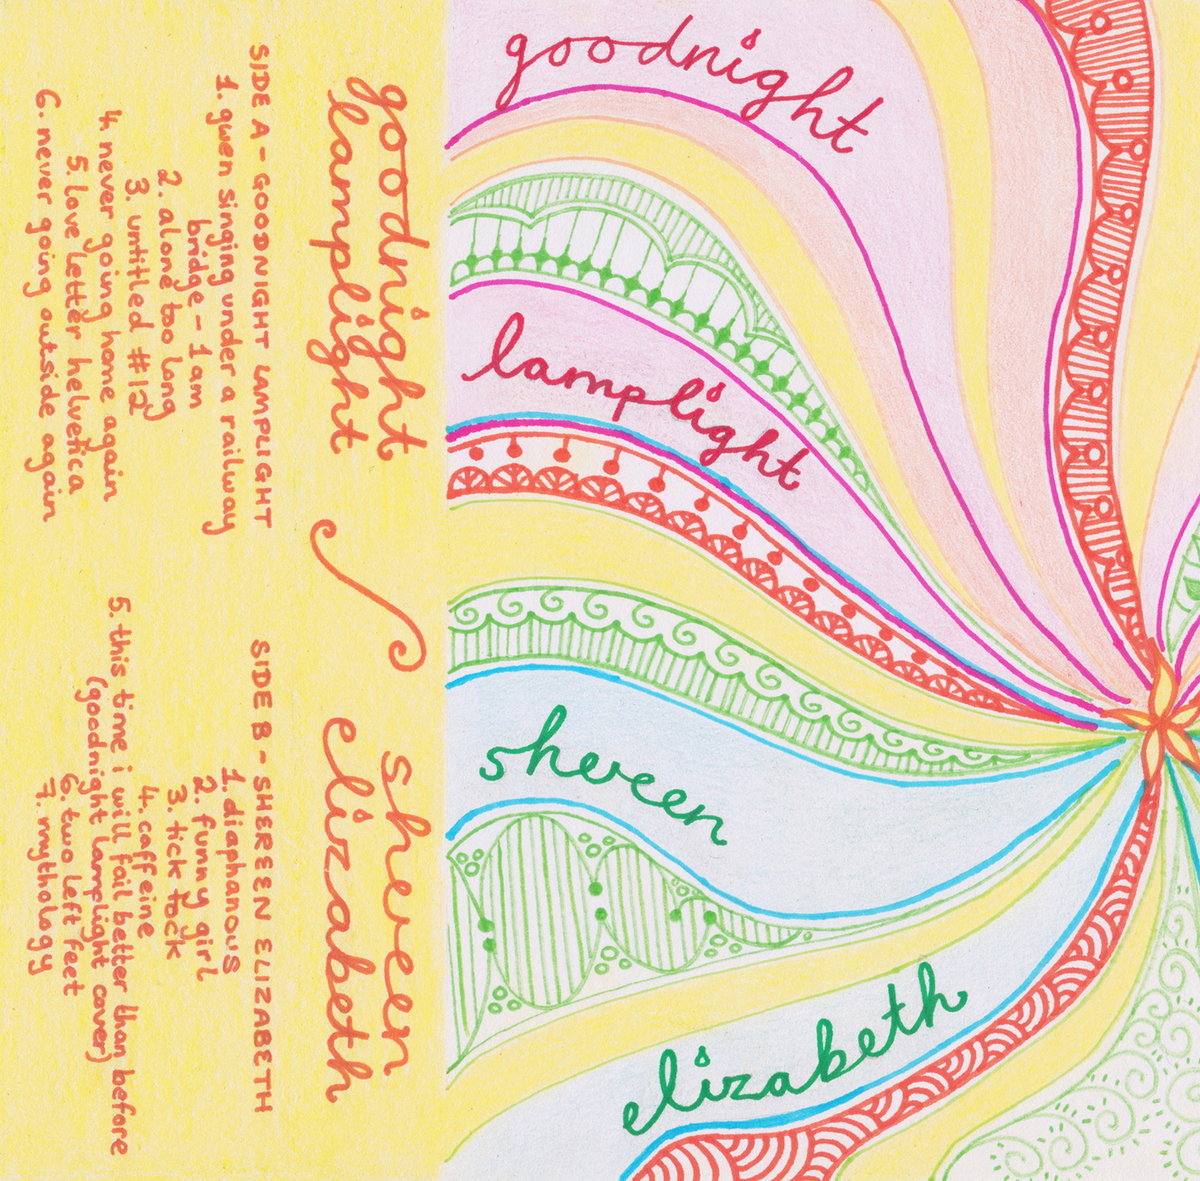 goodnight
lamplight
shereen
elizabeth
goodnight
lamplight
shereen
elizabeth
SIDE A - GOODNIGHT LAMPLIGHT
1. gwen singing under a railway
bridge - 1 am
2. alone too long
3. untitled #12
4. never going home again
5. love letter helvetica
6. never going outside again
SIDE B - SHEREEN ELIZABETH
1. diaphanous
2. funny girl
3. tick tock
4. caffeine
5. this time i will fail better than before
(goodnight lamplight cover)
6. two left feet
7. mythology